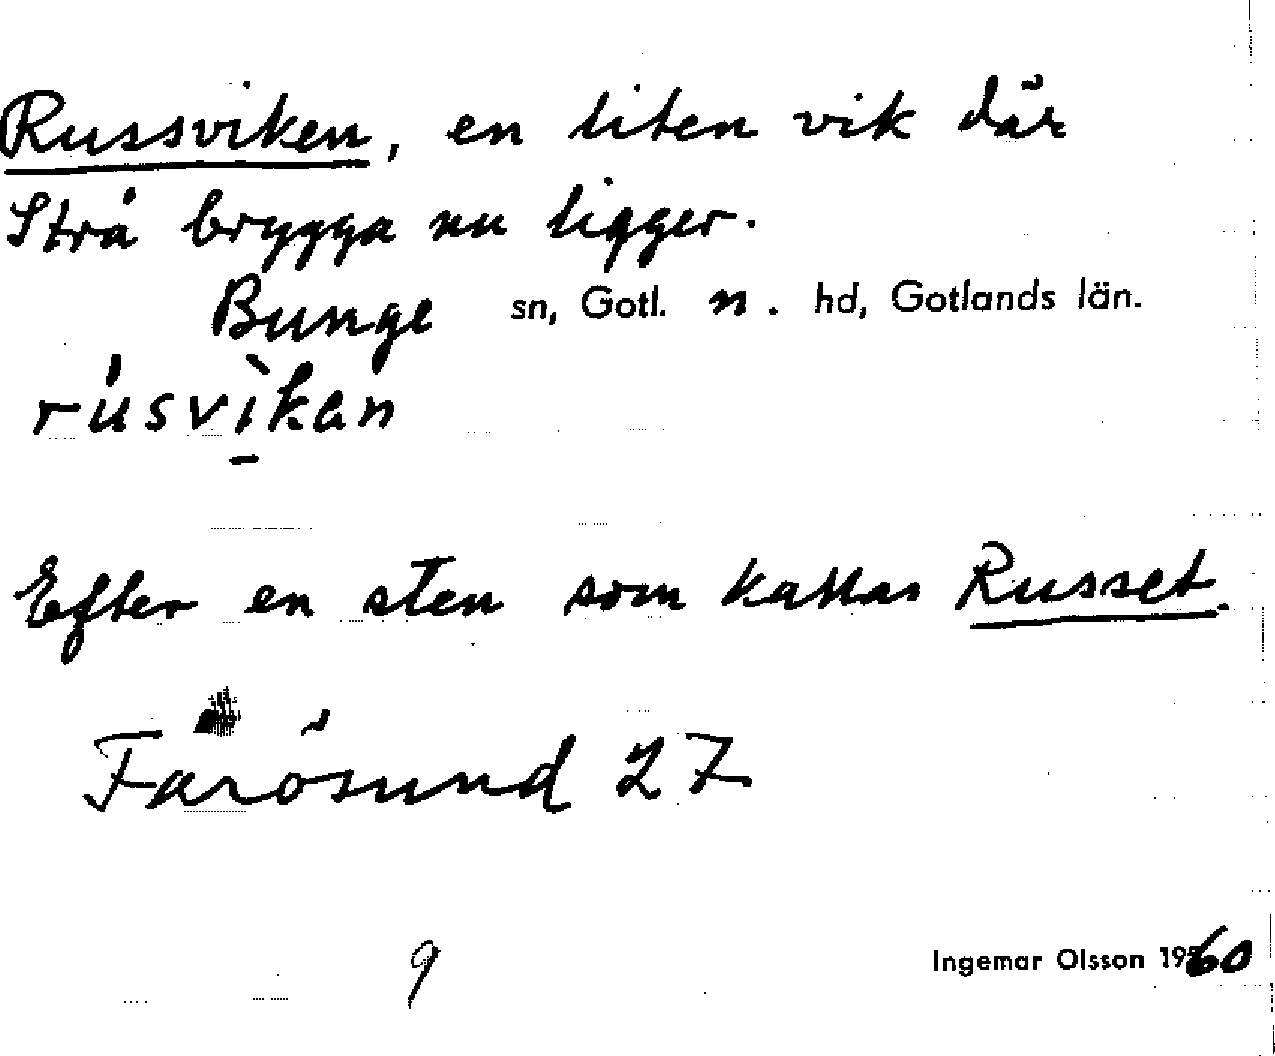 Russviken, en liten vik där
Strå brygga nu ligger.
Bunge sn, Gotl. n. hd, Gotlands län.
rúsvı̀kan
Efter en sten som kallas Russet.
Fårösund 27
9
Ingemar Olsson 1960